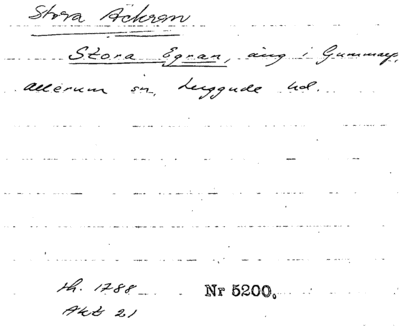 Stora Äckran
Stora Egran, äng i Gunnarp,
Allerum sn, Luggude hd.
th. 1788 Nr 5200.
Akt 21